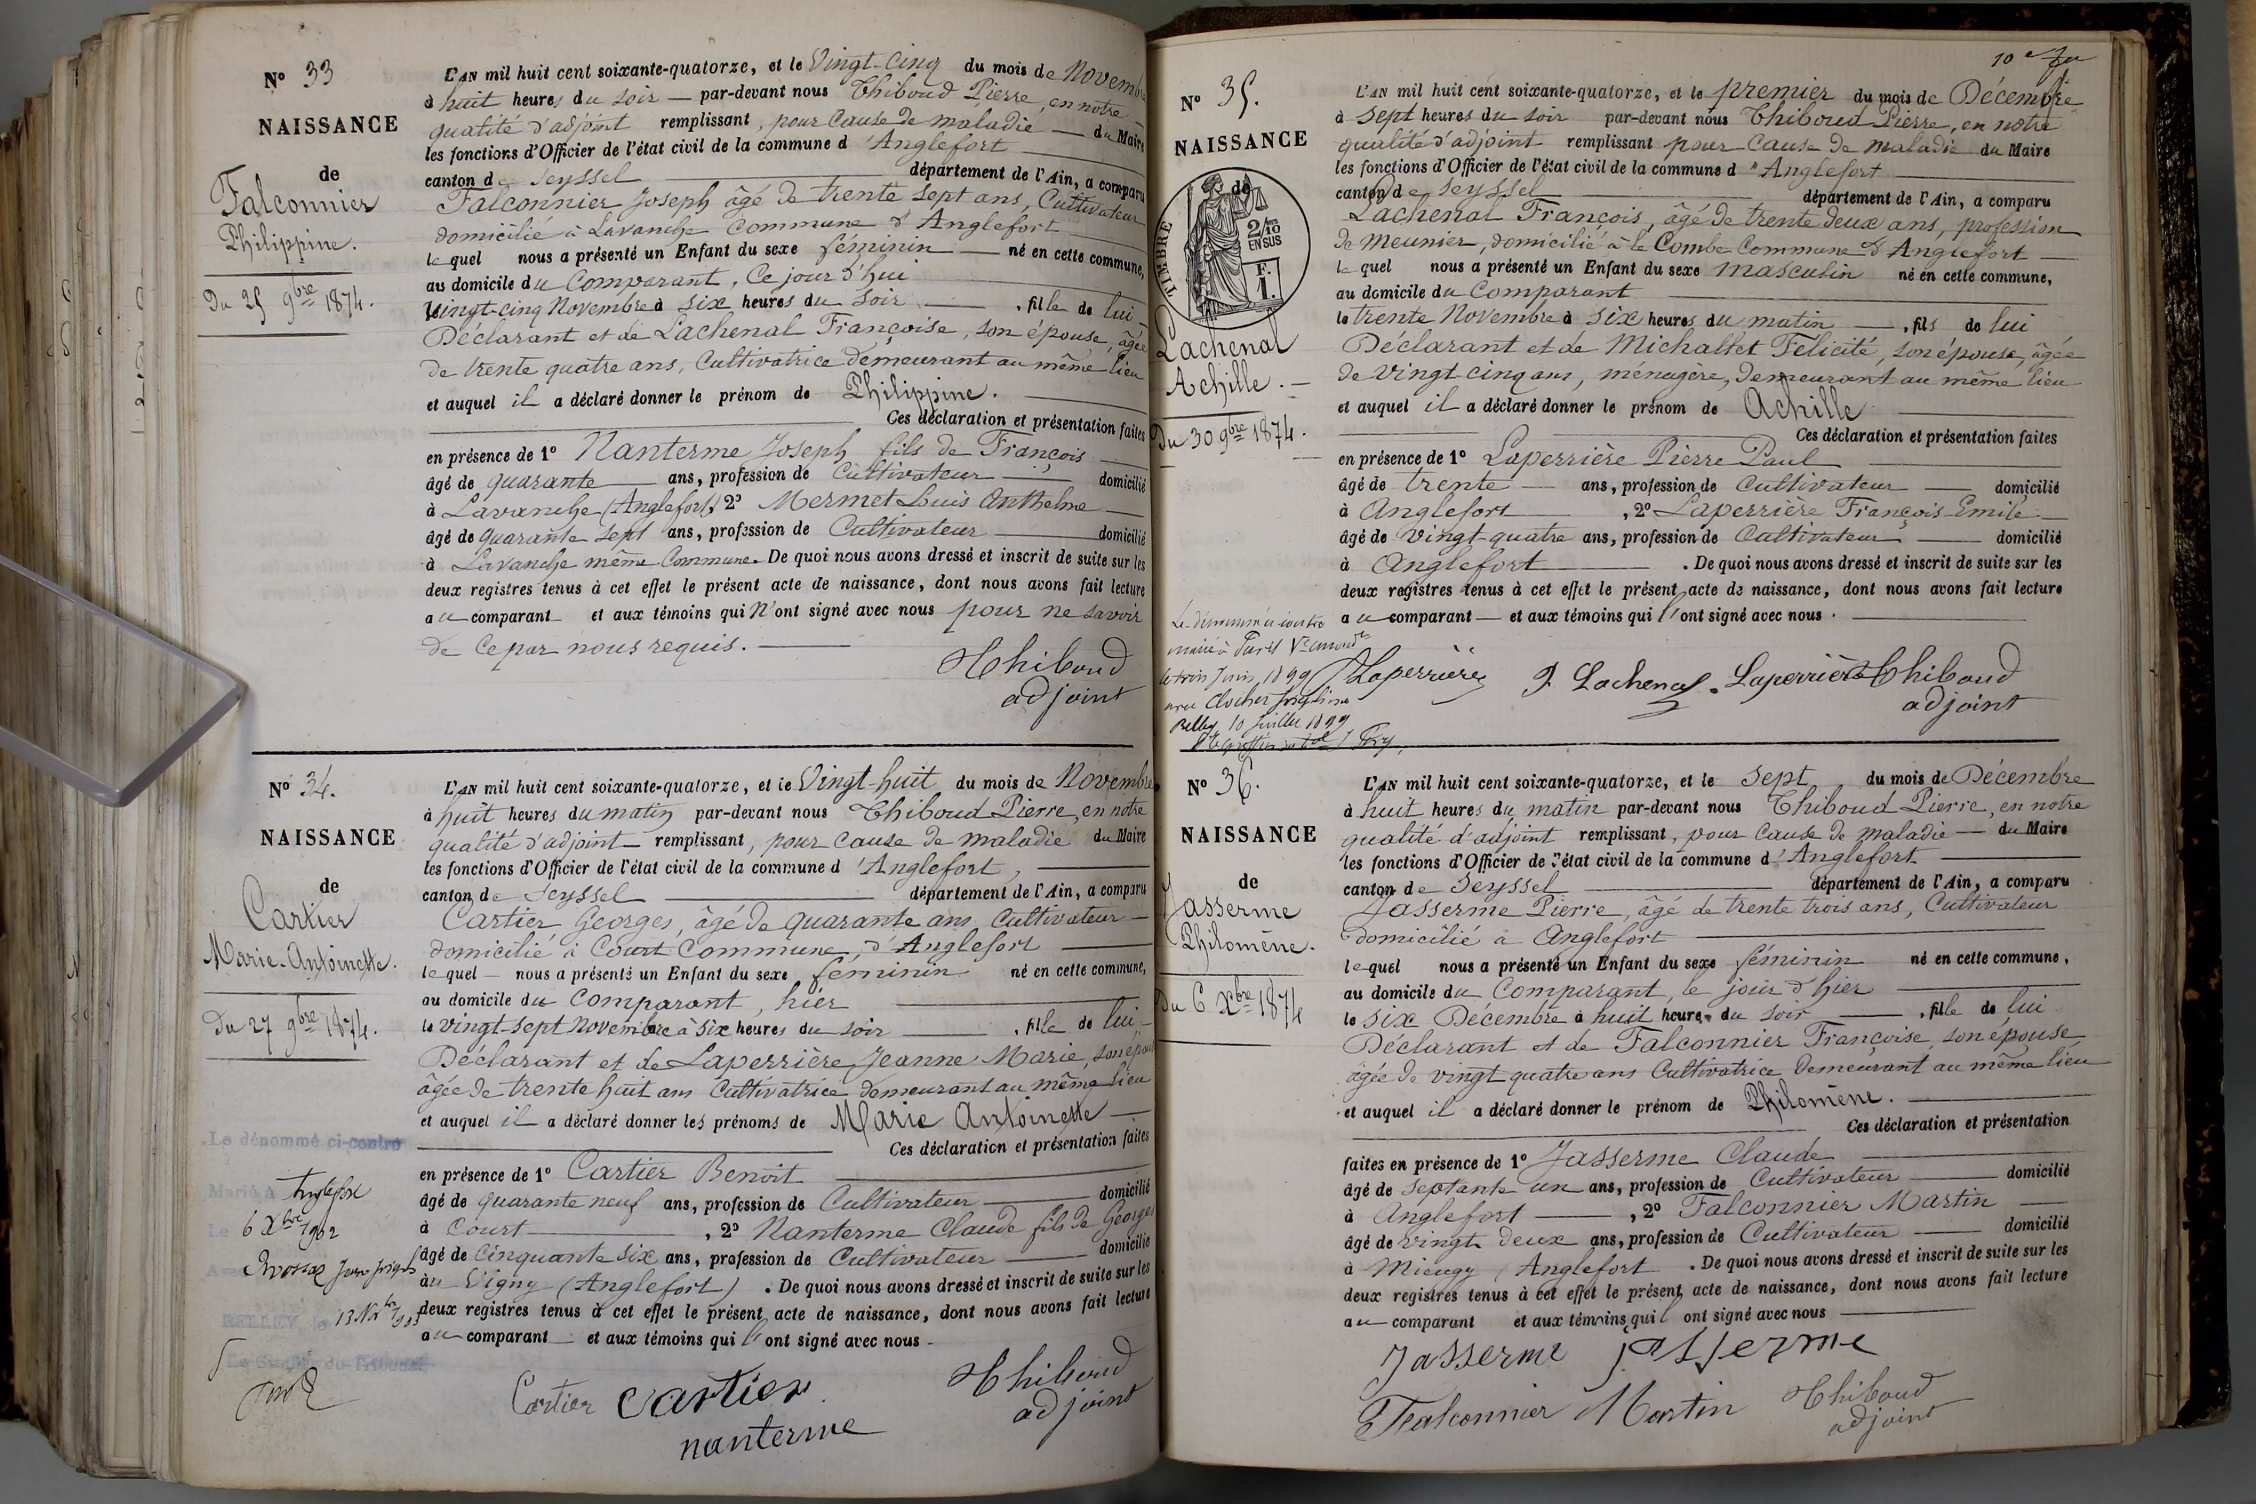 N° 33
NAISSANCE
de
Falconnier
Philippine.
Du 25 9bre 1874.
L'AN mil huit cent soixante-quatorze, et le Vingt-cinq du mois de Novembre
à huit heures du soir — par-devant nous Thiboud Pierre, en notre
qualité d'adjoint remplissant, pour cause de maladie — du Maire
les fonctions d'Officier de l'état civil de la commune d'Anglefort
canton de Seyssel département de l'Ain, a comparu
Falconnier Joseph âgé de trente sept ans, Cultivateur
domicilié à Lavanche Commune d'Anglefort
lequel nous a présenté un Enfant du sexe féminin — né en cette commune,
au domicile du Comparant, Ce jour d'hui
Vingt-cinq Novembre à six heures du soir , fille de lui
Déclarant et de Lachenal Françoise, son épouse, âgée
de trente quatre ans, Cultivatrice demeurant au même lieu
et auquel il a déclaré donner le prénom de Philippine.
Ces déclaration et présentation faites
en présence de 1° Nanterme Joseph fils de François
âgé de quarante ans, profession de Cultivateur domicilié
à Lavanche (Anglefort), 2° Mermet Louis Anthelme
âgé de quarante sept ans, profession de Cultivateur domicilié
à Lavanche même Commune. De quoi nous avons dressé et inscrit de suite sur les
deux registres tenus à cet effet le présent acte de naissance, dont nous avons fait lecture
au comparant et aux témoins qui n'ont signé avec nous pour ne savoir
de Ce par nous requis.
Thiboud
adjoint
N° 34.
NAISSANCE
de
Cartier
Marie-Antoinette.
Du 27 9bre 1874.
L'AN mil huit cent soixante-quatorze, et le Vingt-huit du mois de Novembre
à huit heures du matin par-devant nous Thiboud Pierre, en notre
qualité d'adjoint — remplissant, pour cause de maladie du Maire
les fonctions d'Officier de l'état civil de la commune d'Anglefort,
canton de Seyssel département de l'Ain, a comparu
Cartier Georges, âgé de quarante ans, Cultivateur
domicilié à Court Commune, d'Anglefort
lequel — nous a présenté un Enfant du sexe féminin né en cette commune,
au domicile du Comparant, hier
le vingt-sept Novembre à six heures du soir , fille de lui
Déclarant et de Laperrière Jeanne Marie, son épouse
âgée de trente huit ans Cultivatrice demeurant au même lieu
et auquel il a déclaré donner les prénoms de Marie Antoinette
Ces déclaration et présentation faites
en présence de 1° Cartier Benoit
âgé de quarante neuf ans, profession de Cultivateur domicilié
à Court , 2° Nanterme Claude fils de Georges
âgé de Cinquante six ans, profession de Cultivateur domicilié
au Vigny (Anglefort) . De quoi nous avons dressé et inscrit de suite sur les
deux registres tenus à cet effet le présent acte de naissance, dont nous avons fait lecture
au comparant et aux témoins qui l'ont signé avec nous
Le dénommé ci-contre
Marié à Anglefort
Le 6 Xbre 1902
BELLEY, le 13
Cartier Cartier
Thiboud
adjoint
nanterme
10e
N° 35.
NAISSANCE
de
TIMBRE
2/10
EN SUS
F.
1.
Lachenal
Achille.
Du 30 9bre 1874.
L'AN mil huit cent soixante-quatorze, et le premier du mois de Décembre
à sept heures du soir par-devant nous Thiboud Pierre, en notre
qualité d'adjoint remplissant pour Cause de maladie du Maire
les fonctions d'Officier de l'état civil de la commune d'Anglefort
canton de Seyssel département de l'Ain, a comparu
Lachenal François, âgé de trente deux ans, profession
de Meunier, domicilié à la Combe Commune d'Anglefort
lequel nous a présenté un Enfant du sexe masculin né en cette commune,
au domicile du Comparant
le trente Novembre à six heures du matin , fils de lui
Déclarant et de Michallet Félicité, son épouse, âgée
de Vingt cinq ans, ménagère, demeurant au même lieu
et auquel il a déclaré donner le prénom de Achille
Ces déclaration et présentation faites
en présence de 1° Laperrière Pierre Paul
âgé de trente ans, profession de Cultivateur domicilié
à Anglefort , 2° Laperrière François Emile
âgé de vingt-quatre ans, profession de Cultivateur domicilié
à Anglefort . De quoi nous avons dressé et inscrit de suite sur les
deux registres tenus à cet effet le présent acte de naissance, dont nous avons fait lecture
au comparant — et aux témoins qui l'ont signé avec nous.
Le dénommé ci-contre
marié à Paris
le trois Juin 1899
avec Clocher Joséphine
Belley 10 Juillet 1899
Laperrière Lachenal Laperrière Thiboud
adjoint
N° 36.
NAISSANCE
de
Jasserme
Philomène.
Du 6 Xbre 1874
L'AN mil huit cent soixante-quatorze, et le sept du mois de Décembre
à huit heures du matin par-devant nous Thiboud Pierre, en notre
qualité d'adjoint remplissant, pour Cause de maladie — du Maire
les fonctions d'Officier de l'état civil de la commune d'Anglefort
canton de Seyssel département de l'Ain, a comparu
Jasserme Pierre, âgé de trente trois ans, Cultivateur
domicilié à Anglefort
lequel nous a présenté un Enfant du sexe féminin né en cette commune,
au domicile du Comparant, le jour d'hier
le six Décembre à huit heures du soir , fille de lui
Déclarant et de Falconnier Françoise, son épouse
âgée de vingt quatre ans Cultivatrice demeurant au même lieu
et auquel il a déclaré donner le prénom de Philomène.
Ces déclaration et présentation
faites en présence de 1° Jasserme Claude
âgé de septante un ans, profession de Cultivateur domicilié
à Anglefort , 2° Falconnier Martin
âgé de vingt deux ans, profession de Cultivateur domicilié
à Mieugy (Anglefort . De quoi nous avons dressé et inscrit de suite sur les
deux registres tenus à cet effet le présent acte de naissance, dont nous avons fait lecture
au comparant et aux témoins qui l ont signé avec nous
Jasserme Jasserme
Falconnier Martin Thiboud
adjoint